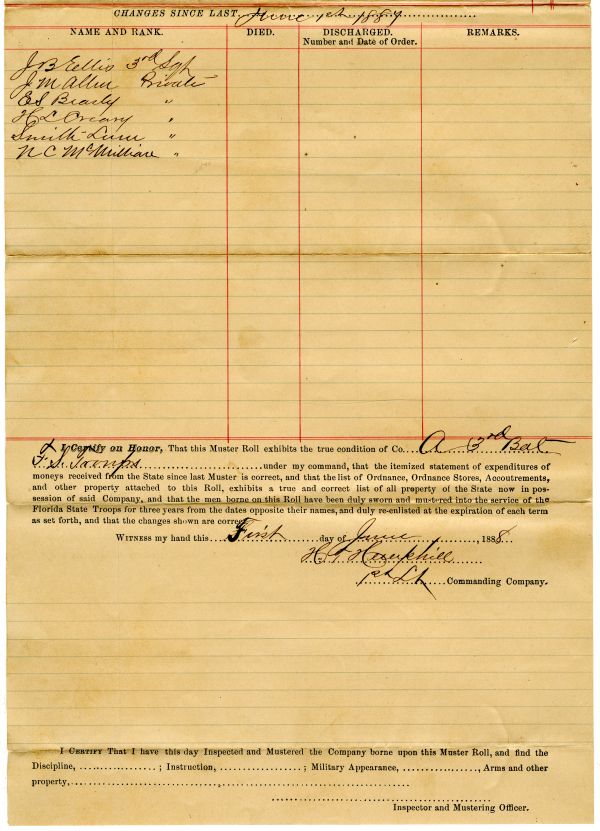 CHANGES SINCE LAST June 1st 1887
NAME AND RANK. DIED. DISCHARGED. REMARKS.
Number and Date of Order.
J B Eellis 3rd Sgt
J M Allen Private
E S Beasly "
H L Creary "
Smith Lunn "
N C McMillian "
I Certify on Honor, That this Muster Roll exhibits the true condition of Co. A 3rd Bat
F. S. Troops under my command, that the itemized statement of expenditures of
moneys received from the State since last Muster is correct, and that the list of Ordnance, Ordnance Stores, Accoutrements,
and other property attached to this Roll, exhibits a true and correct list of all property of the State now in pos-
session of said Company, and that the men borne on this Roll have been duly sworn and mustered into the service of the
Florida State Troops for three years from the dates opposite their names, and duly re-enlisted at the expiration of each term
as set forth, and that the changes shown are correct.
WITNESS my hand this First day of June, 1888
Commanding Company.
1st Lt
I CERTIFY That I have this day Inspected and Mustered the Company borne upon this Muster Roll, and find the
Discipline, ; Instruction, ; Military Appearance, , Arms and other
property,
Inspector and Mustering Officer.